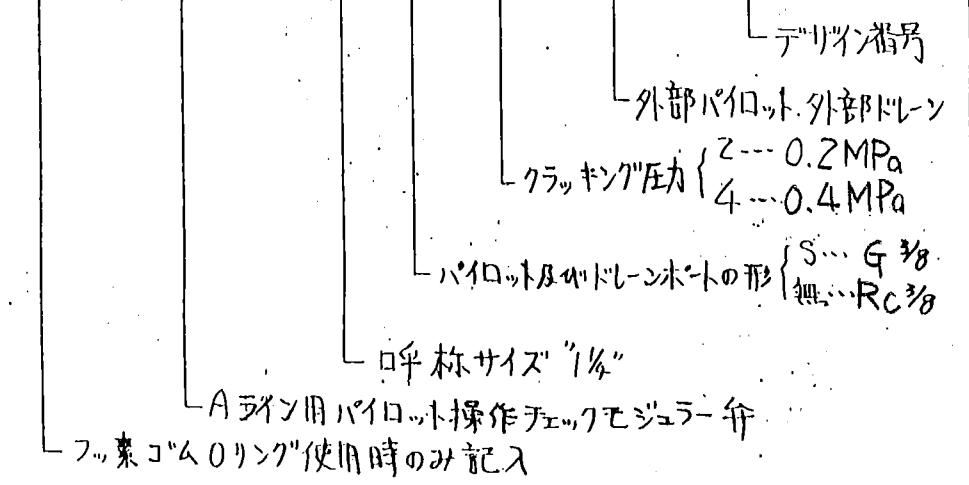 デザイン番号
外部パイロット.外部ドレーン
クラッキング圧力 { 2---0.2MPa
4---0.4MPa
パイロット及びドレーンポートの形 { S… G 3/8
無…Rc 3/8
呼称サイズ "1 1/4"
Aライン用パイロット操作チェックモジュラー弁
フッ素ゴムOリング使用時のみ記入